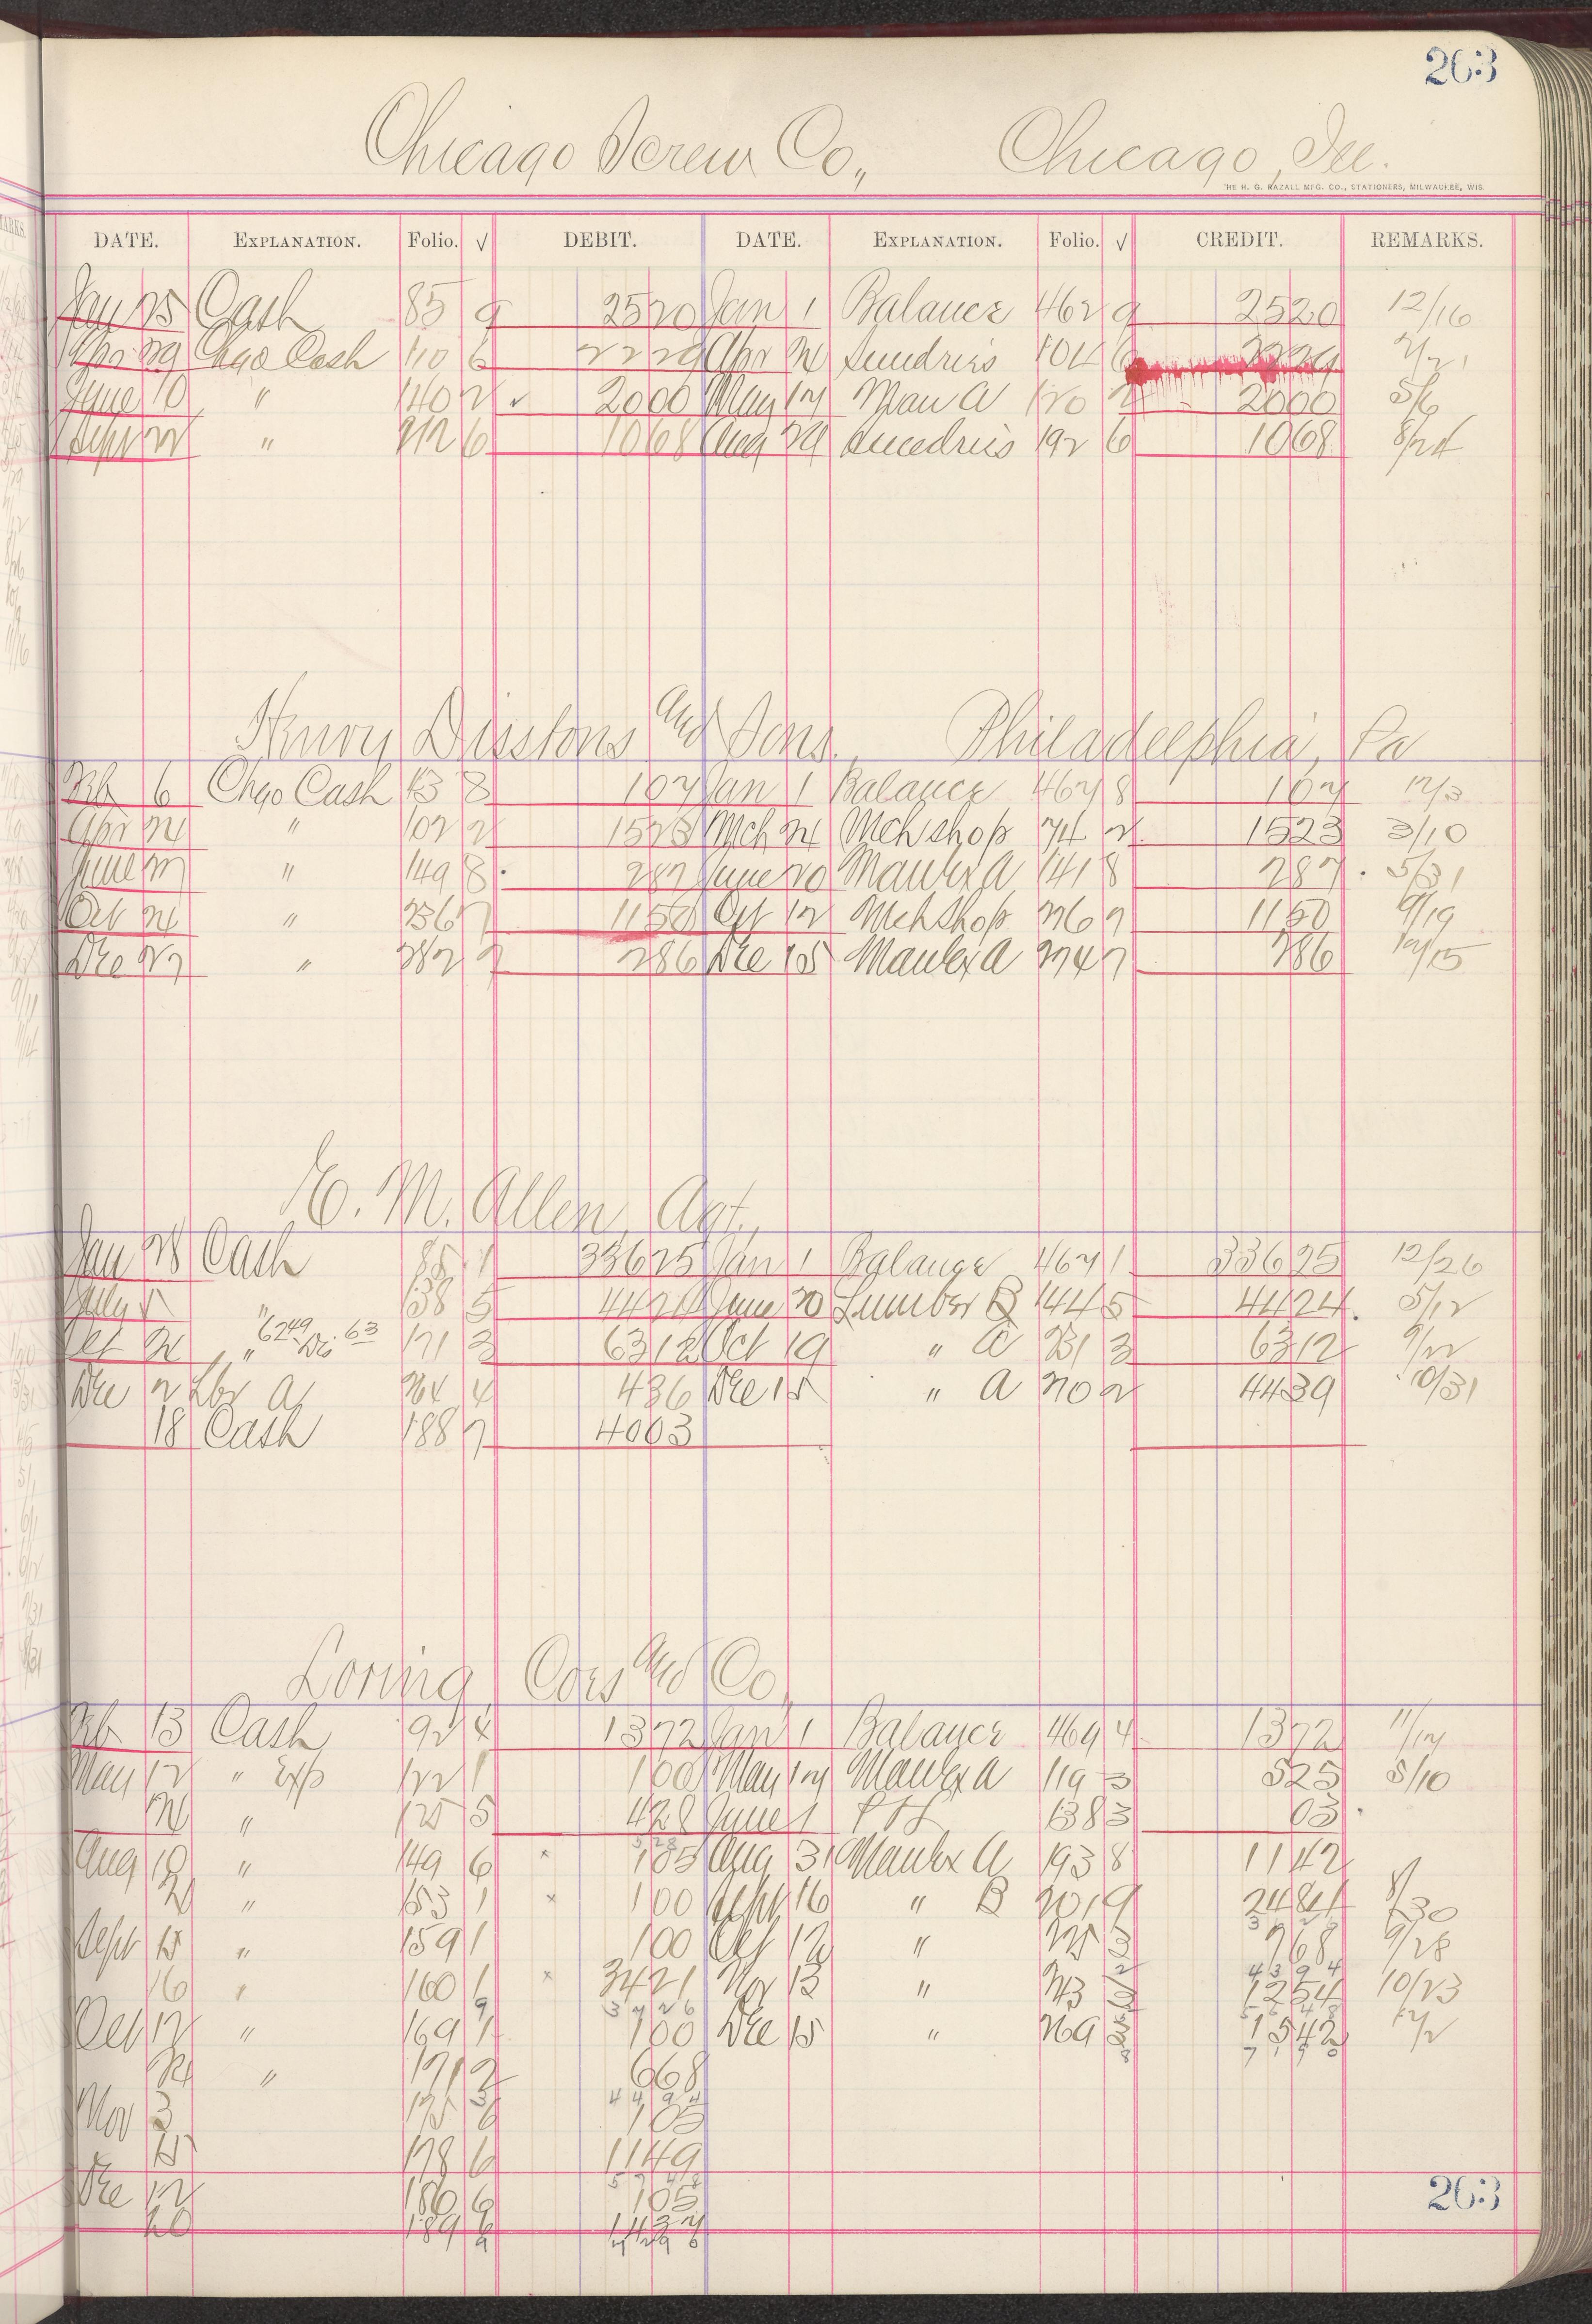 263
Chicago Screw Co., Chicago, Ill.
THE H. G. RAZALL MFG. CO., STATIONERS, MILWAUKEE, WIS.
DATE. EXPLANATION. Folio. √ DEBIT. DATE. EXPLANATION. Folio. √ CREDIT. REMARKS.
Jan 25 Cash 85 9 2520 Jan 1 Balance 462 9 2520 12/16
Apr 29 Chgo Cash 110 6 2229 Apr Sundries 101 6 2229
June 10 " 140 2 2000 May 17 Man A 120 2 2000 5/6
Sept 22 " 212 6 1068 Aug 29 Sundries 192 6 1068 8/24
Henry Disstons and Sons, Philadelphia, Pa
Feb 6 Chgo Cash 43 8 107 Jan 1 Balance 467 8 107 12/3
Apr 24 " 102 2 1523 Mch 24 Mch Shop 74 2 1523 3/10
June 27 " 149 8 287 June 20 Manlex A 141 8 287 5/31
Oct 24 " 236 7 1150 Oct 12 Mch Shop 226 7 1150 9/19
Dec 27 " 282 7 286 Dec 15 Manlex A 274 7 286 12/15
E. M. Allen, Agt.,
Jan 28 Cash 85 1 33625 Jan 1 Balance 467 1 33625 12/26
July 1 " 138 5 4424 June 20 Lumber B 144 5 4424 5/12
Oct 24 " 6249 Dis. 63 171 3 6312 Oct 19 " A 231 3 6312 9/22
Dec 2 Lbr A 264 4 436 Dec 15 " A 270 2 4439 10/31
18 Cash 188 7 4003
Loring Coes and Co,
Feb 13 Cash 92 4 1372 Jan 1 Balance 469 4 1372 11/17
May 12 " Exp 122 1 100 May 17 Manlex A 119 3 525 5/10
" 125 5 428 June 1 P & L 138 3 03
Aug 19 " 149 6 105 Aug 31 Manlex A 193 8 1142
" 153 1 100 Sept 16 " B 201 9 2484 8/30
Sept 15 " 159 1 100 Oct 12 " 225 3 768 9/28
16 " 160 1 3421 Nov 13 " 243 1254 10/23
3726 4394
Oct 12 " 169 1 100 Dec 15 " 269 1542 12/2
" 171 2 668
Nov 3 175 105
178 6 1149
Dec 12 186 6 105
20 189 1437
263